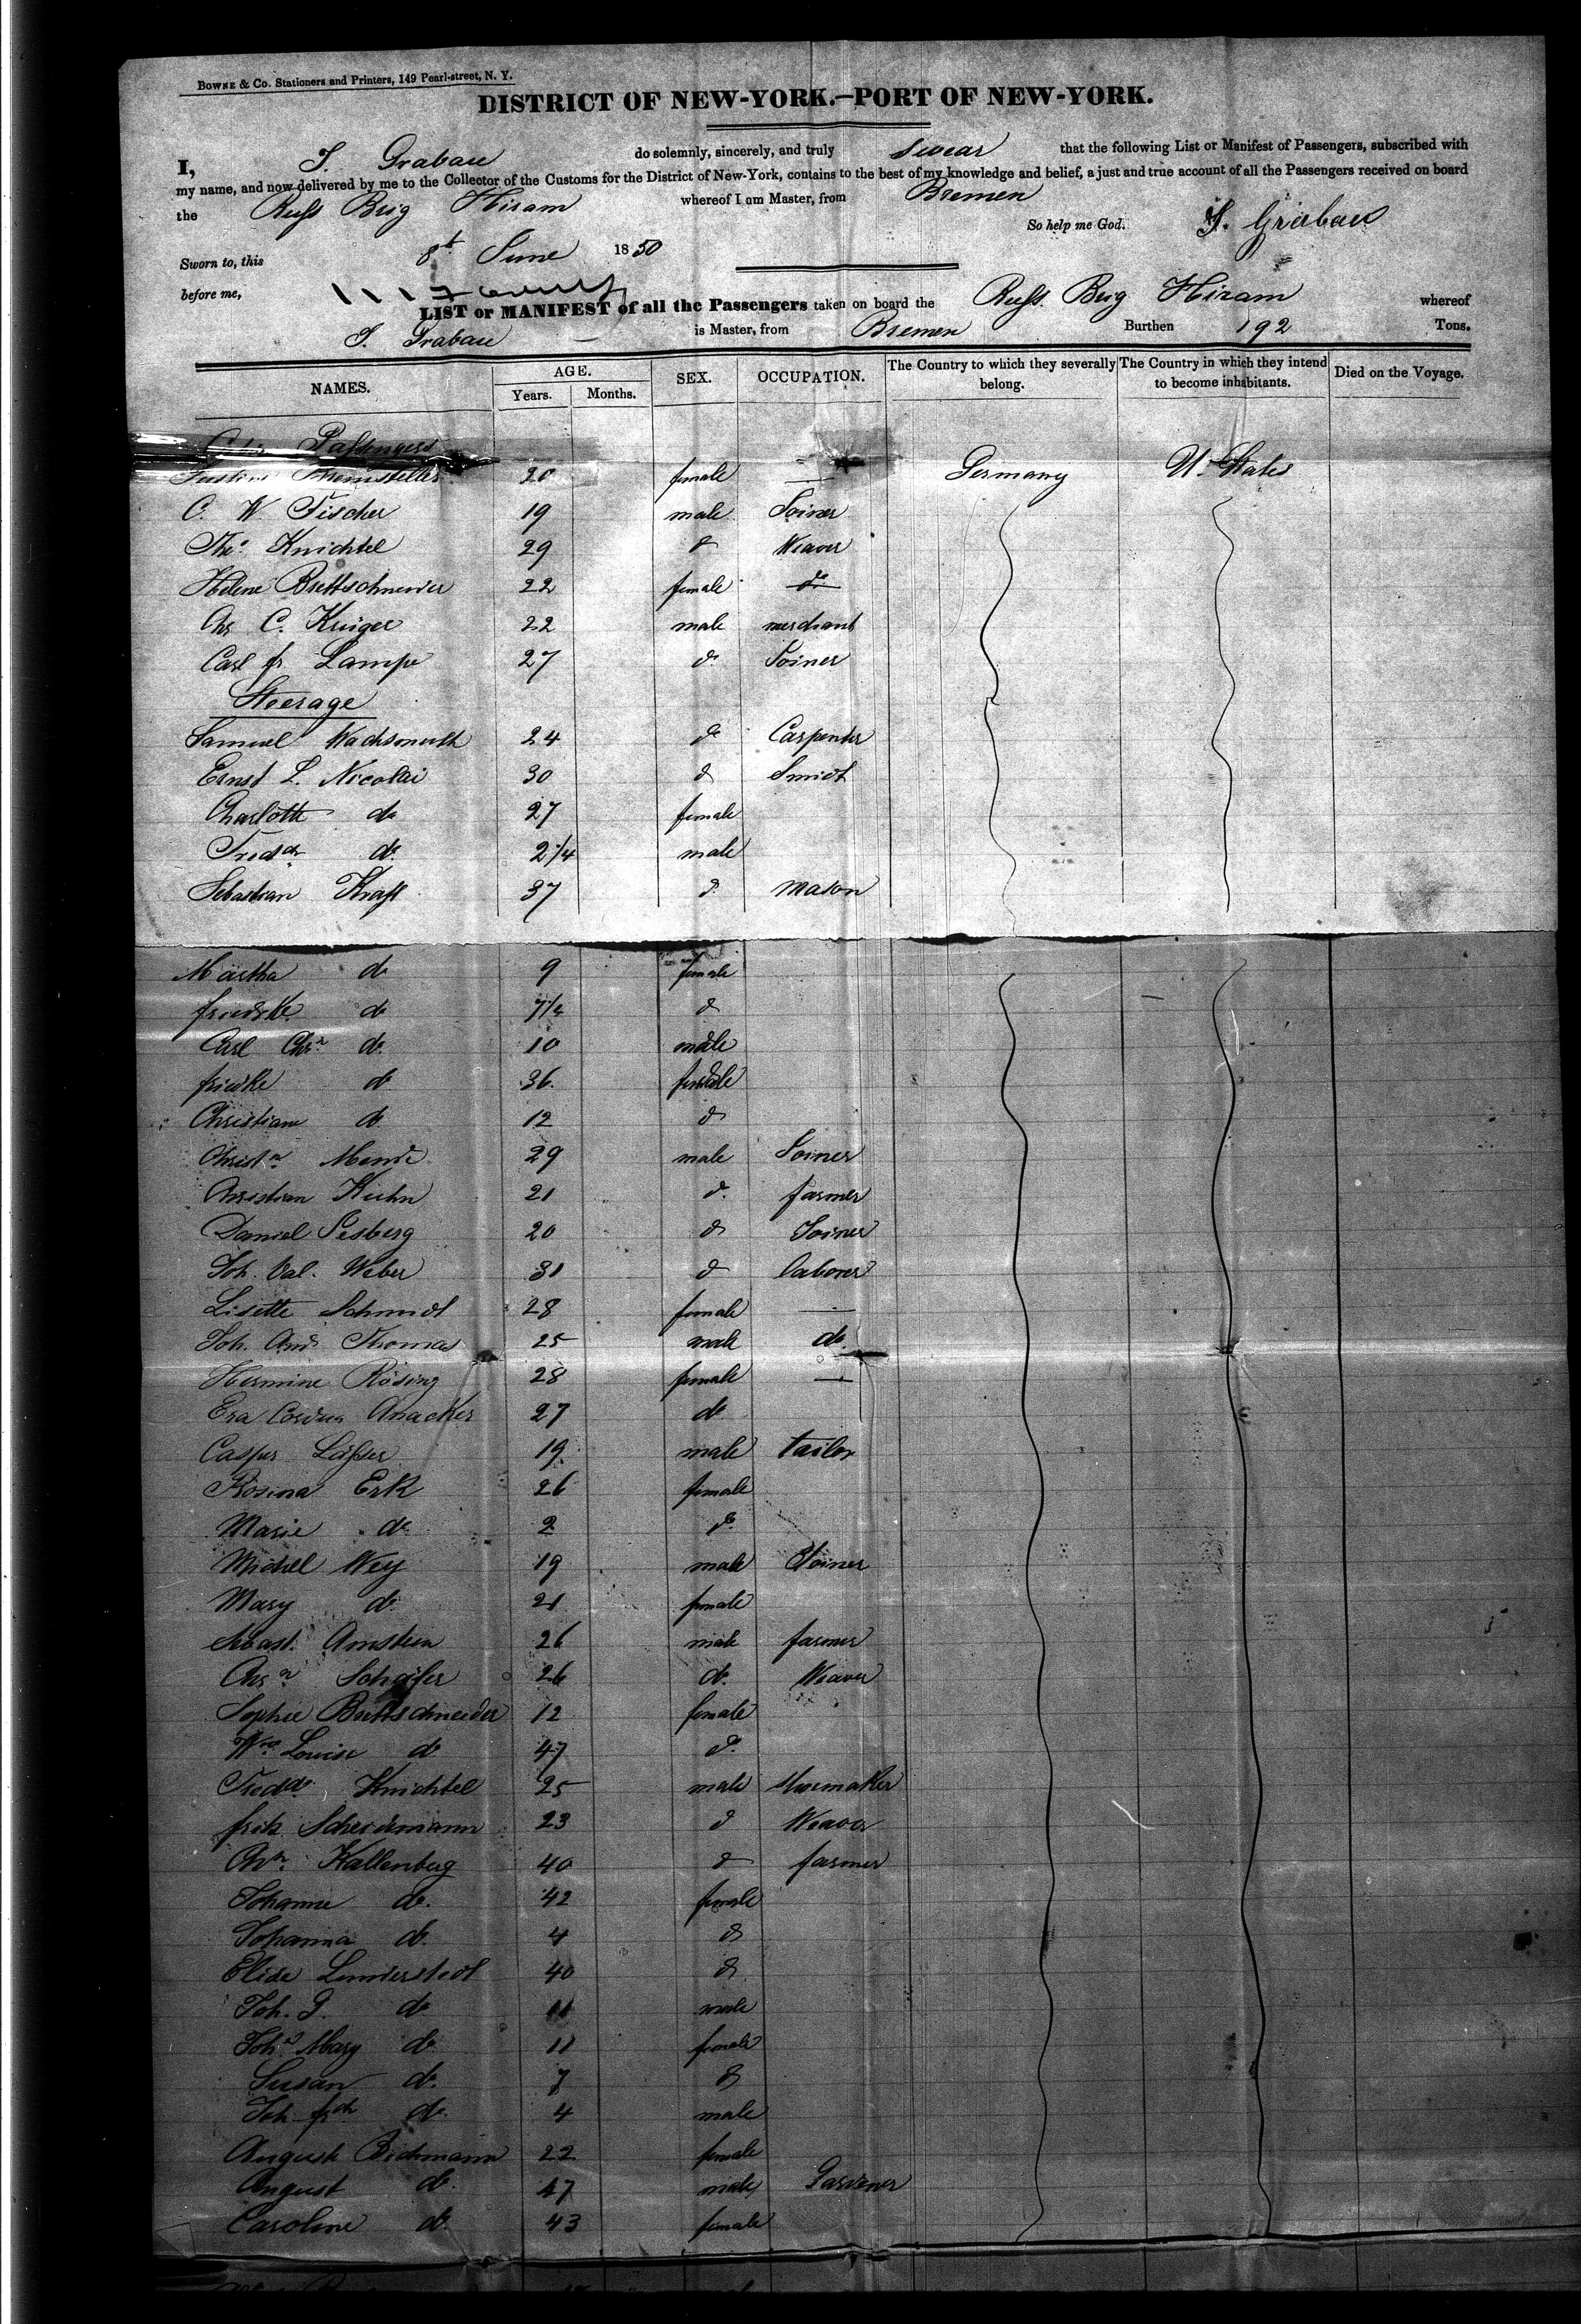 BOWNE & CO. Stationers and Printers, 149 Pearl-street, N. Y.
DISTRICT OF NEW-YORK.—PORT OF NEW-YORK.
I, J. Grabau do solemnly, sincerely, and truly swear that the following List or Manifest of Passengers, subscribed with
my name, and now delivered by me to the Collector of the Customs for the District of New-York, contains to the best of my knowledge and belief, a just and true account of all the Passengers received on board
the Russ Brig Hiram whereof I am Master, from Bremen
So help me God. J. Grabau
Sworn to, this 8t June 1850
before me,
LIST or MANIFEST of all the Passengers taken on board the Russ. Brig Hiram whereof
J. Grabau is Master, from Bremen Burthen 192 Tons.
NAMES. AGE. Years. Months. SEX. OCCUPATION. The Country to which they severally belong. The Country in which they intend to become inhabitants. Died on the Voyage.
Passengers
20 female — Germany U. States
C. W. Fischer 19 male Joiner
Theo Knichtel 29 do Weaver
Helene Brettschneider 22 female do
Chr C. Krüger 22 male merchant
Carl fr Lampe 27 do Joiner
Steerage
Samuel Wachsmuth 24 do Carpenter
Ernst L. Nicolai 30 do Smidt
Charlotte do 27 female
Fredch do 2 1/4 male
Sebastian Kraft 37 do mason
Martha do 9 female
friedrke do 7 1/2 do
Carl Chrn do 10 male
friedke do 36 female
Christiane do 12 do
Christn Mende 29 male Joiner
Christian Kuhn 21 do farmer
Daniel Sesberg 20 do Joiner
Joh. Val. Weber 31 do laborer
Lisette Schmidt 28 female —
Joh. And Thomas 25 male do
Hermine Rösing 28 female —
Eva Cordua Anacker 27 do
Casper Lässer 19 male tailor
Rosina Erk 26 female
Marie do 2 do
Michel Wey 19 male Joiner
Mary do 21 female
Sebast. Arnstein 26 male farmer
Chrn Schäfer 26 do Weaver
Sophie Brettschneider 12 female
Wme Louise do 47 do
Fredch Knichtel 25 male Shoemaker
fritz Scheidemann 23 do Weaver
Chrn Kallenberg 40 do farmer
Johanne do 42 female
Johanna do 4 do
Elise Lunderstedt 40 do
Joh. G. do 11 male
Joha Mary do 11 female
Susan do 7 do
Joh frdch do 4 male
August Bichmann 22 female
August do 47 male Gardener
Caroline do 43 female